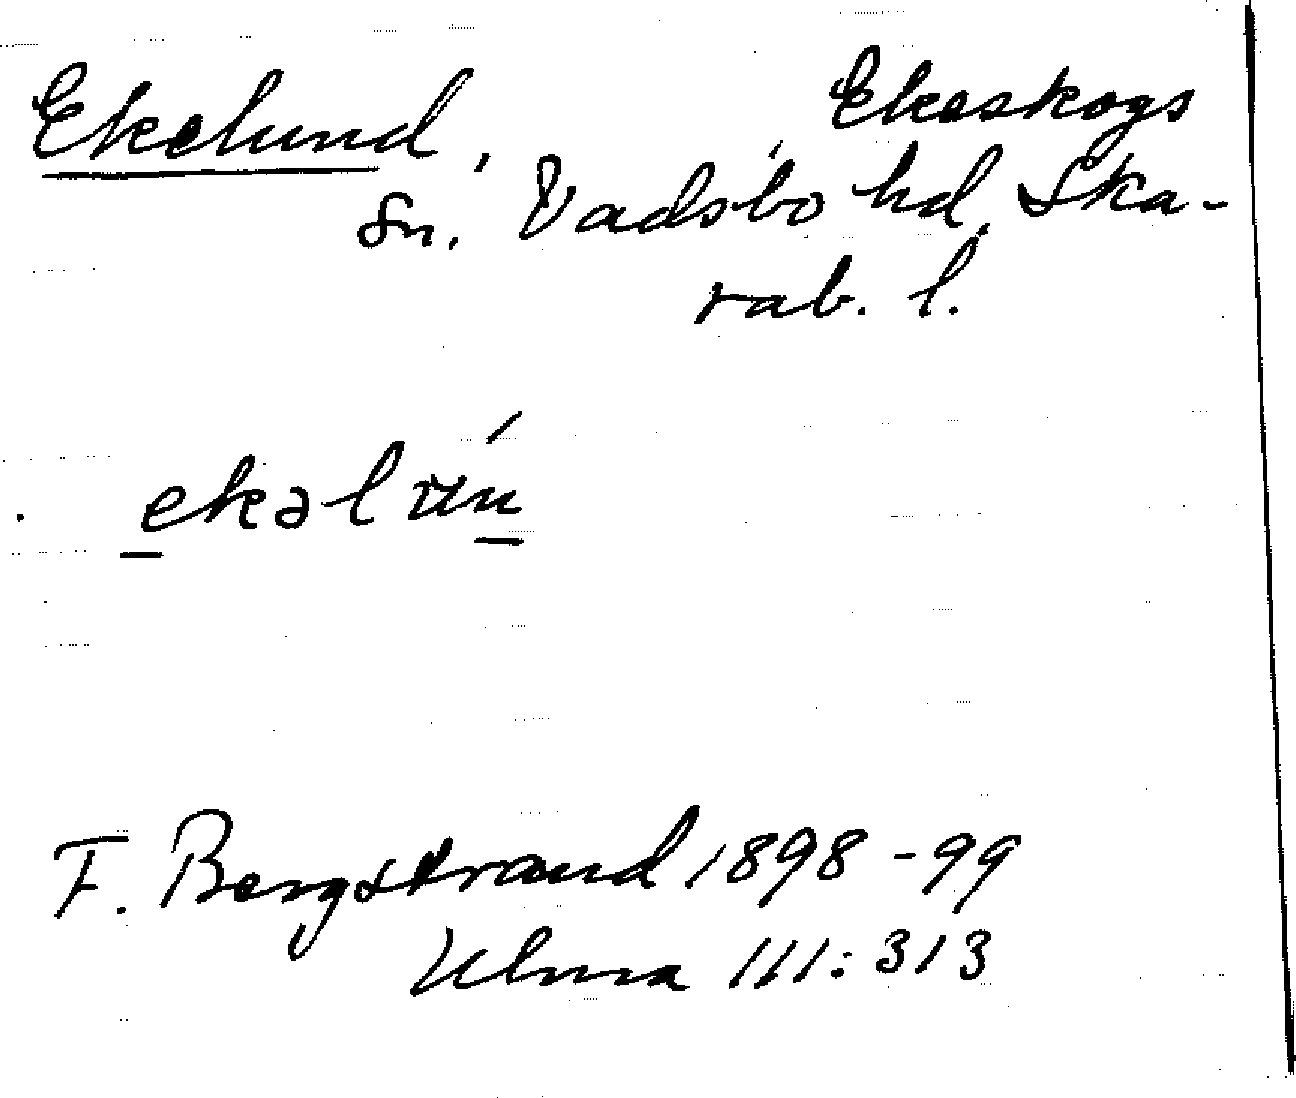 Ekelund, Ekeskogs
Sn. Vadsbo hd, Ska-
rab. l.
ekəlún
F. Bergstrand 1898-99
Ulma 111:313